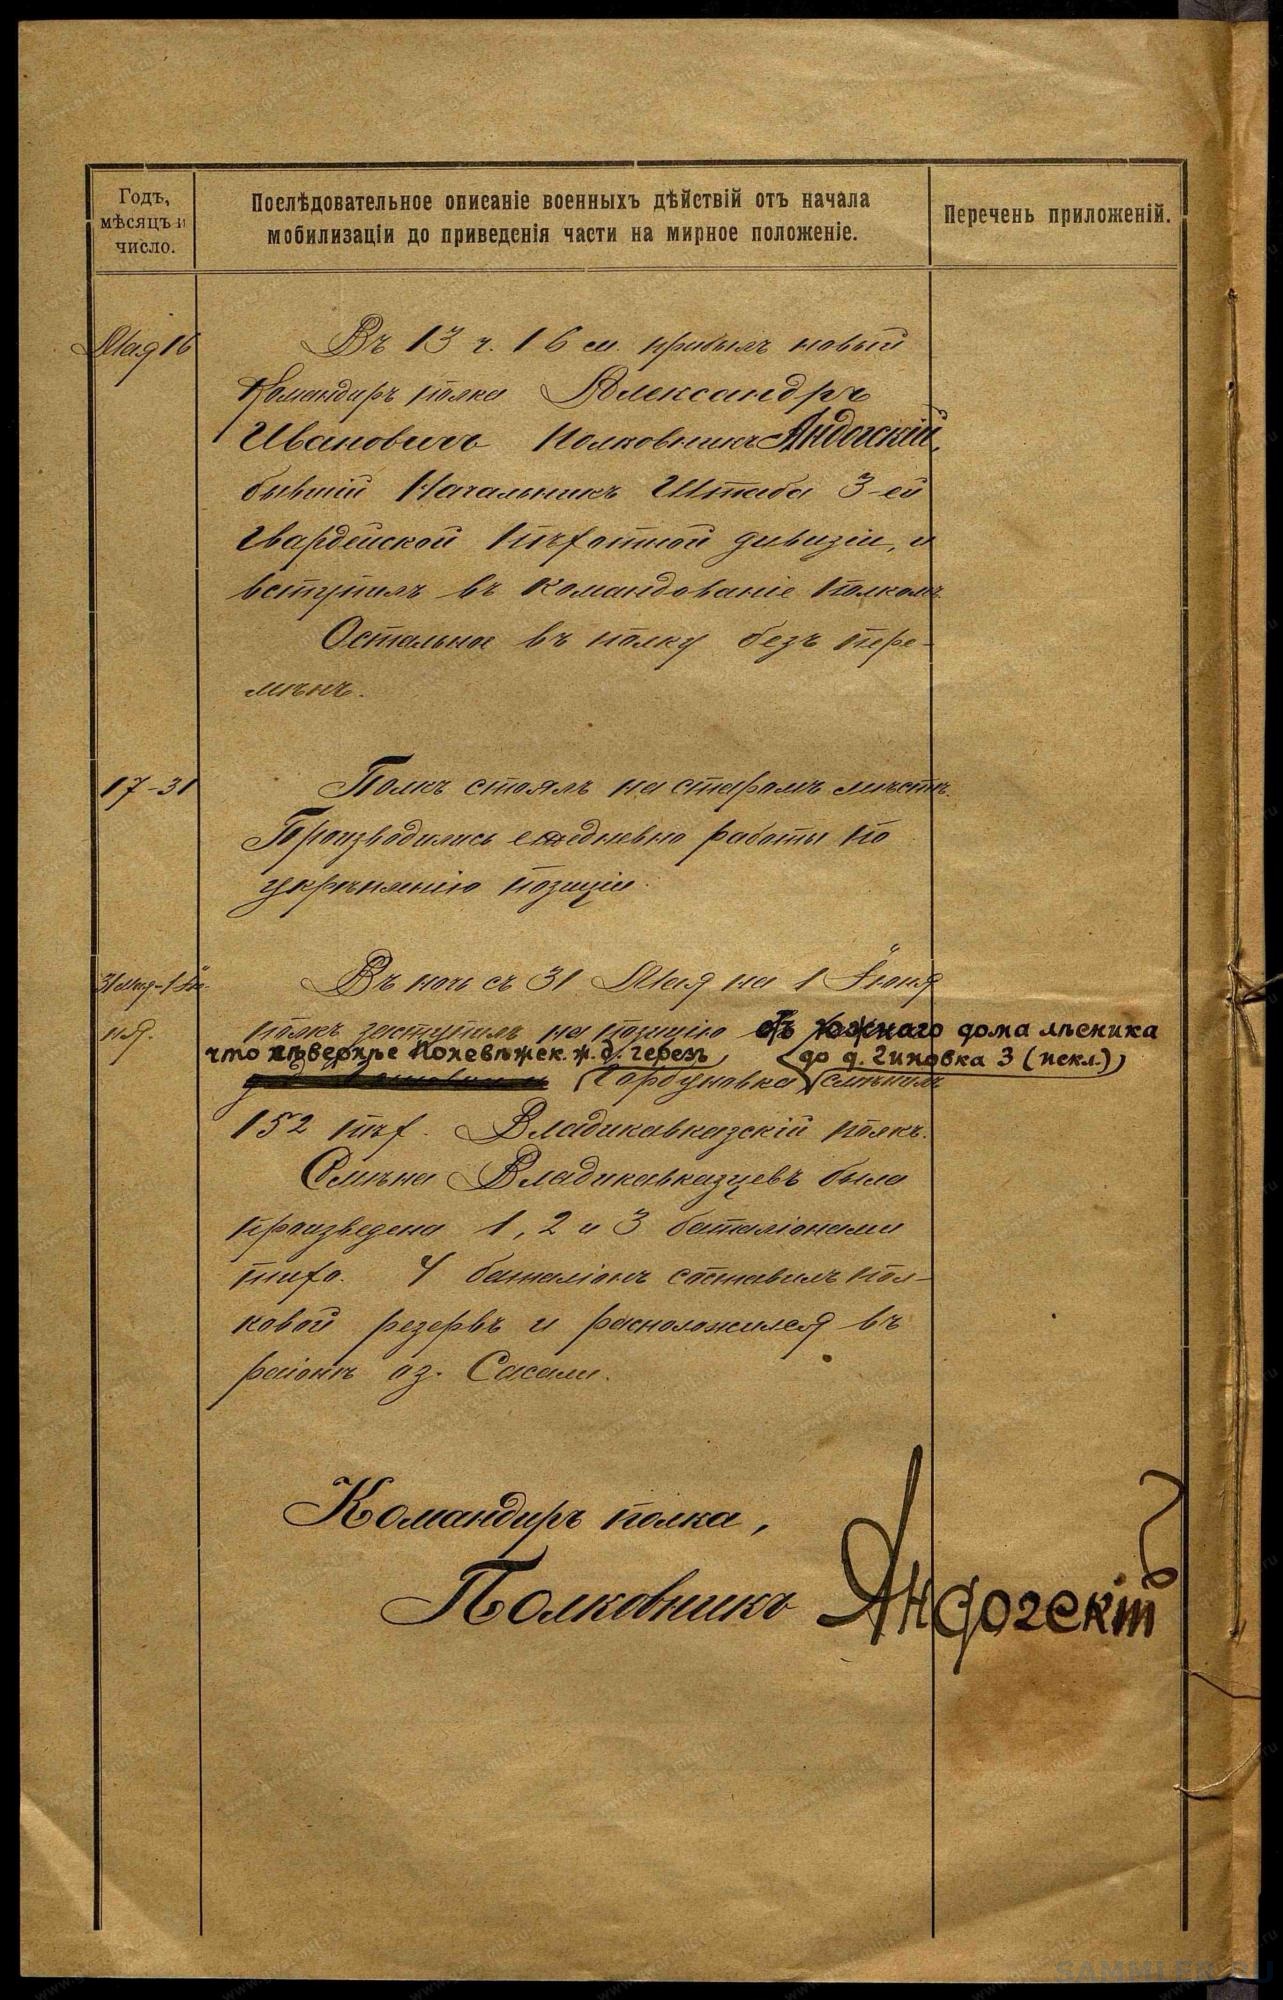 Годъ,
мѣсяцъ и
число.
Послѣдовательное описаніе военныхъ дѣйствій отъ начала
мобилизаціи до приведенія части на мирное положеніе.
Перечень приложеній.
Мая 16
Въ 13 ч. 16 м. прибылъ новый
Командиръ полка Александръ
Ивановичъ Полковникъ Андогскій,
бывшій Начальникъ Штаба 3-ей
Гвардейской пѣхотной дивизіи, и
вступилъ въ командованіе полкомъ.
Остальное въ полку безъ пере-
мѣнъ.
17-31
Полкъ стоялъ на старомъ мѣстѣ.
Производились ежедневно работы по
укрѣпленію позиціи.
31 мая-1 Iю-
ня.
Въ ночь съ 31 Мая на 1 Iюня
полкъ заступилъ на позицію отъ южнаго дома лѣсника
что сѣвернѣе Поневѣжск. ж. д. черезъ до д. Гиновка 3 (искл.)
Горбуновка смѣнилъ
152 пѣх. Владикавказскій полкъ.
Смѣна Владикавказцевъ была
произведена 1, 2 и 3 баталіонами
тихо. 4 баталіонъ составилъ пол-
ковой резервъ и расположился въ
раіонѣ оз. Сасали.
Командиръ полка,
Полковникъ Андогскій
SAMMLER.RU